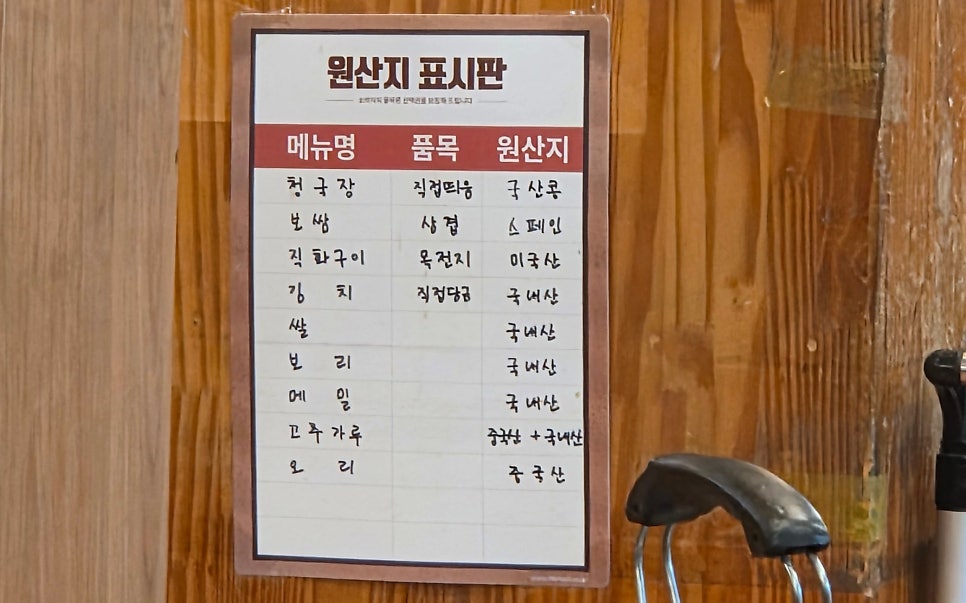 원산지 표시판
메뉴명 품목 원산지
청국장 직접띄움 국산콩
보쌈 삼겹 스페인
직화구이 목전지 미국산
김치 직접담금 국내산
쌀 국내산
보리 국내산
메밀 국내산
고추가루 중국산 + 국내산
오리 중국산